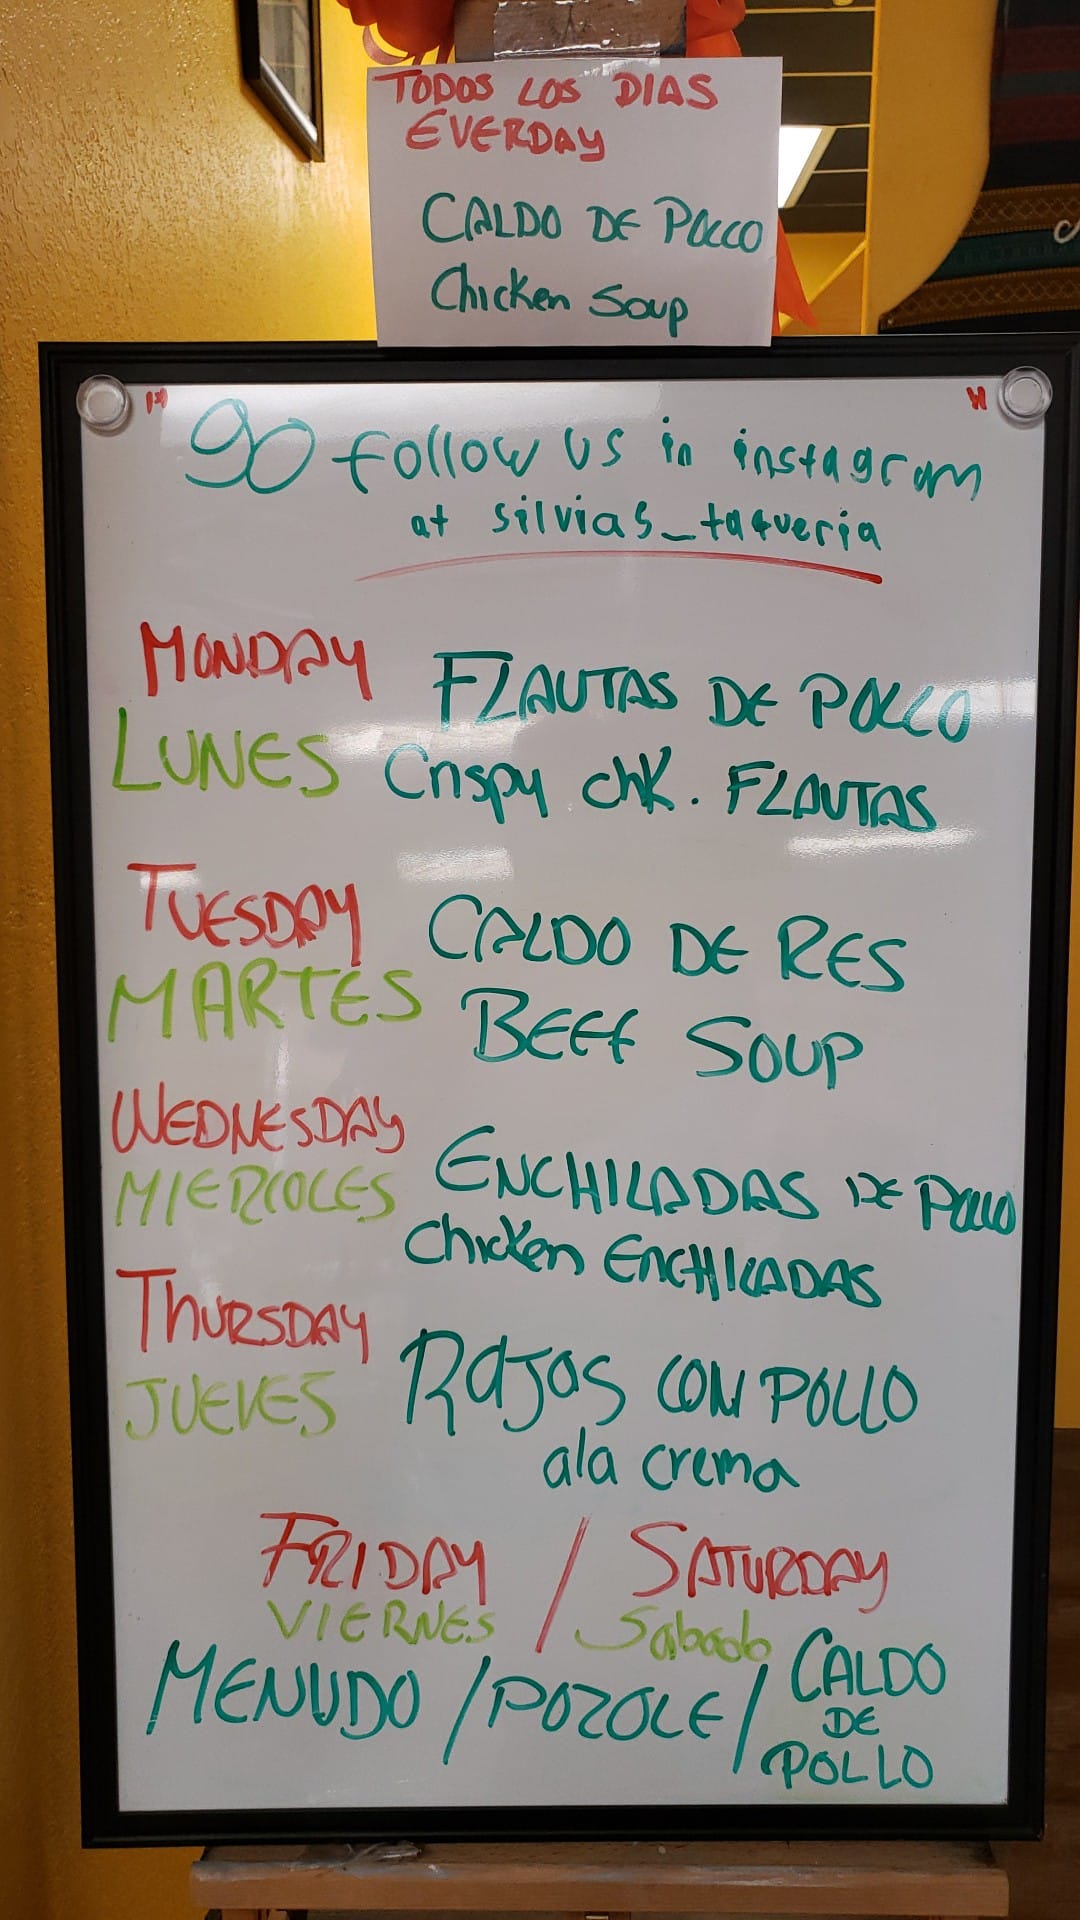 TODOS LOS DIAS
EVERDAY
CALDO DE POLLO
Chicken Soup
go follow us in instagram
at silvias_taqueria
MONDAY
LUNES
FLAUTAS DE POLLO
Crispy chk. FLAUTAS
TUESDAY
MARTES
CALDO DE RES
BEEF SOUP
WEDNESDAY
MIERCOLES
ENCHILADAS DE POLLO
Chicken ENCHILADAS
THURSDAY
JUEVES
RAJAS CON POLLO
ala crema
FRIDAY / SATURDAY
VIERNES Sabado
MENUDO / POZOLE / CALDO
DE
POLLO